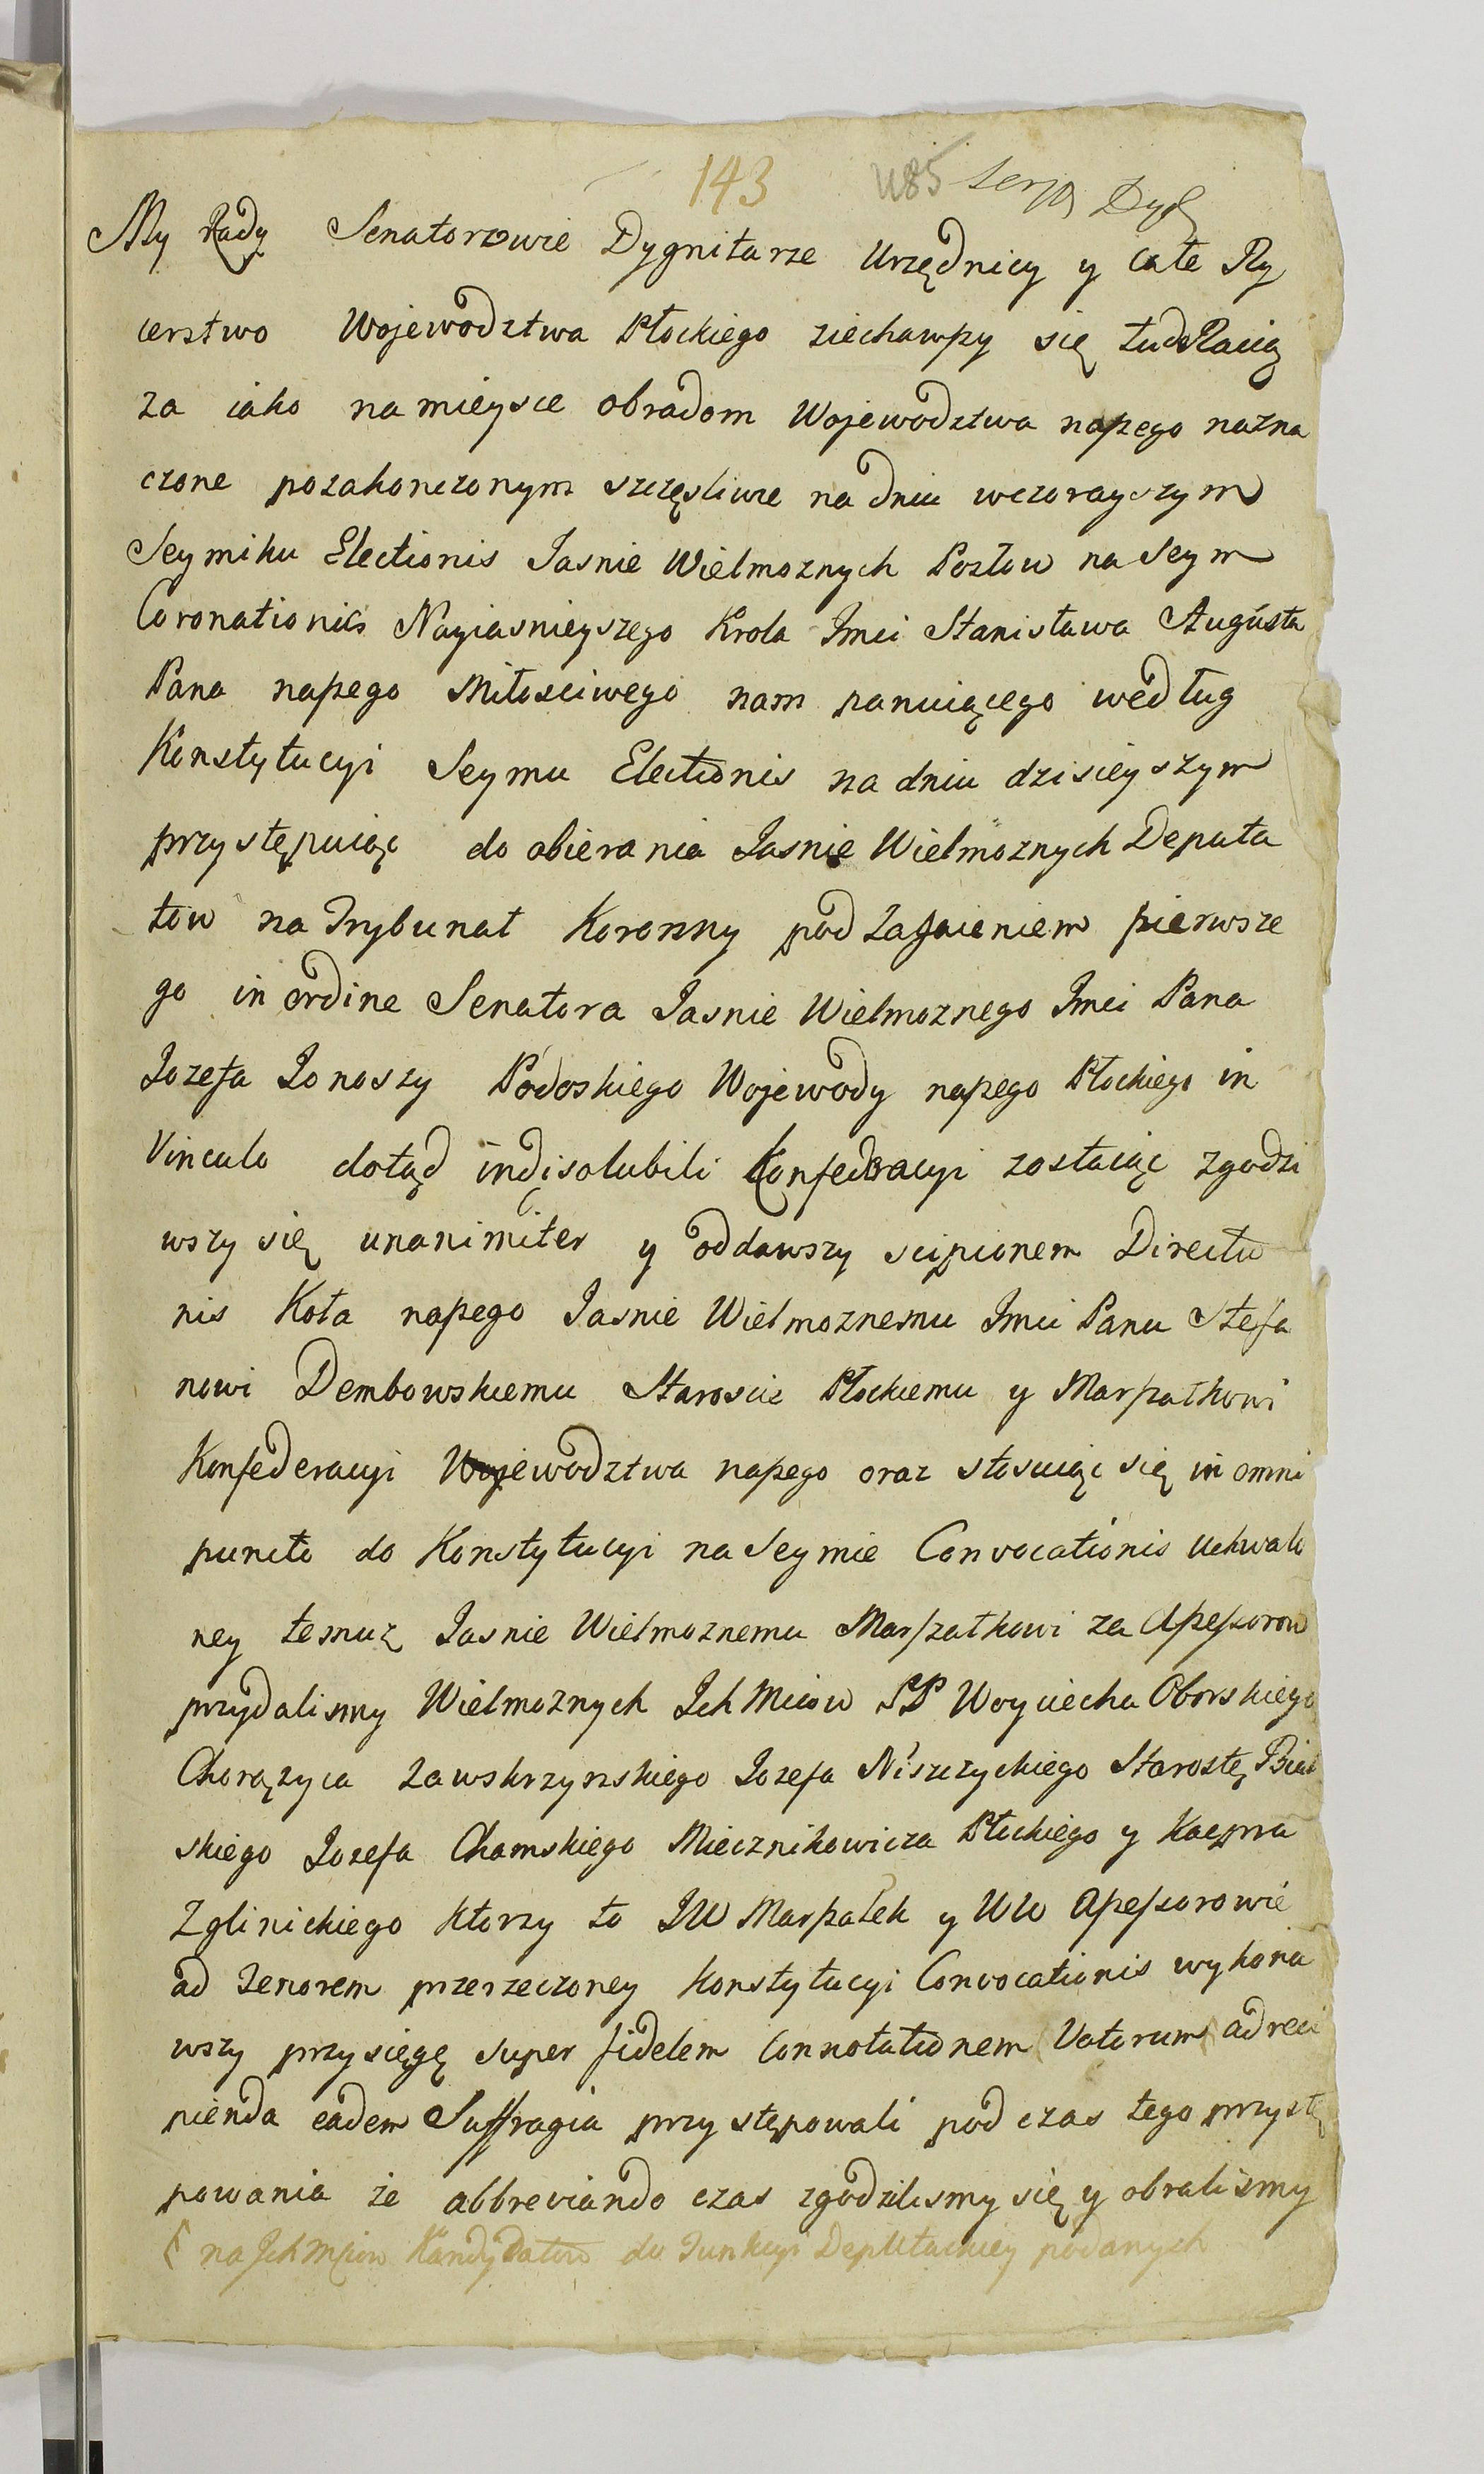 143 485
My Rady Senatorowie Dygnitarze Urzędnicy y całe Ry
cerstwo Wojewodztwa Płockiego ziechawszy się tu do Racią
za iako na mieysce obradom Wojewodztwa naszego nazna
czone po zakonczonym szczęsliwie na dniu wczorayszym
Seymiku Electionis Jasnie Wielmoznych Posłow na Seym
Coronationis Nayiasnieyszego Krola Jmci Stanisława Augusta
Pana naszego Miłosciwego nam panuiącego według
Konstytucyi Seymu Electionis na dniu dzisieyszym
przystępuiąc do obierania Jasnie Wielmoznych Deputa
tow na Trybunał Koronny pod zagaieniem pierwsze
go in ordine Senatora Jasnie Wielmoznego Jmci Pana
Jozefa Jonoszy Podoskiego Wojewody naszego Płockiego in
Vinculo dotąd indisolubili Konfederacyi zostaiąc zgodzi
wszy się unanimiter y oddawszy scipionem Directio
nis Koła naszego Jasnie Wielmoznemu Jmci Panu Stefa
nowi Dembowskiemu Staroscie Płockiemu y Marszałkowi
Konfederacyi Wojewodztwa naszego oraz stosuiąc się in omni
puncto do Konstytucyi na Seymie Convocationis uchwalo
ney temuz Jasnie Wielmoznemu Marszałkowi za Assessorow
przydalismy Wielmoznych Ich Mciow PP Woyciecha Oborskiego
Chorązyca Zawskrzynskiego Jozefa Niszczyckiego Starostę Biel
skiego Jozefa Chamskiego Miecznikowicza Płockiego y Kacpra
Zglinickiego ktorzy to JW Marszałek y WW Assessorowie
ad tenorem przerzeczoney Konstytucyi Convocationis wykona
wszy przysięgę super fidelem Connotationem Votorum ad reci
pienda eadem Suffragia przystępowali pod czas tego przystę
powania że abbreviando czas zgodzilismy się y obralismy
na Ich Mciow Kandydatow do Funkcyi Deputackiey podanych